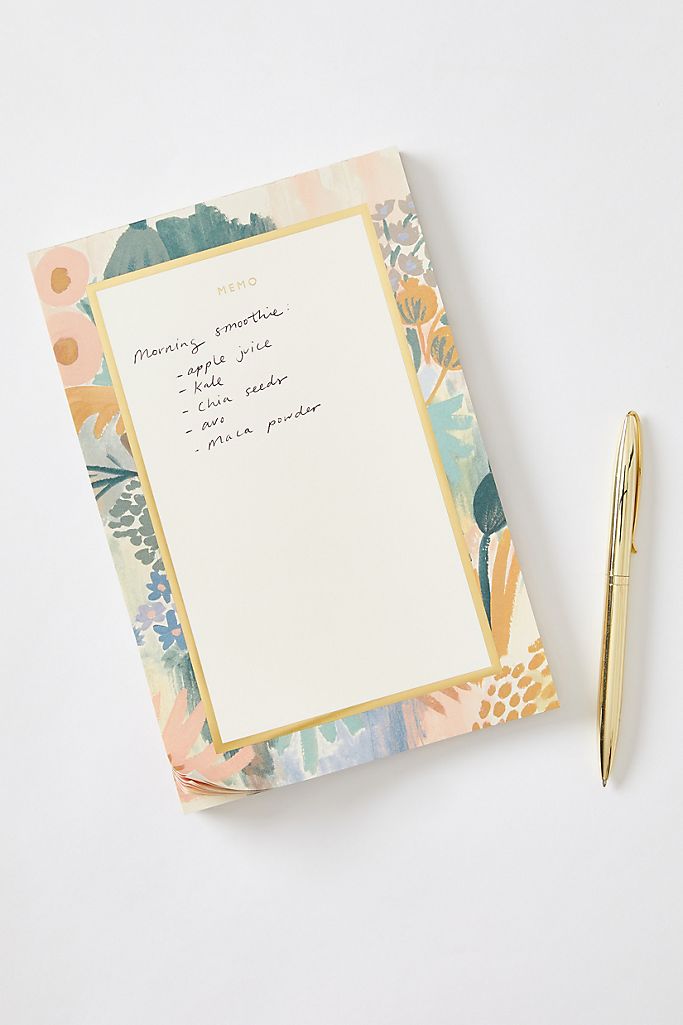 MEMO
Morning smoothie:
- apple juice
- Kale
- Chia seeds
- avo
- Maca powder